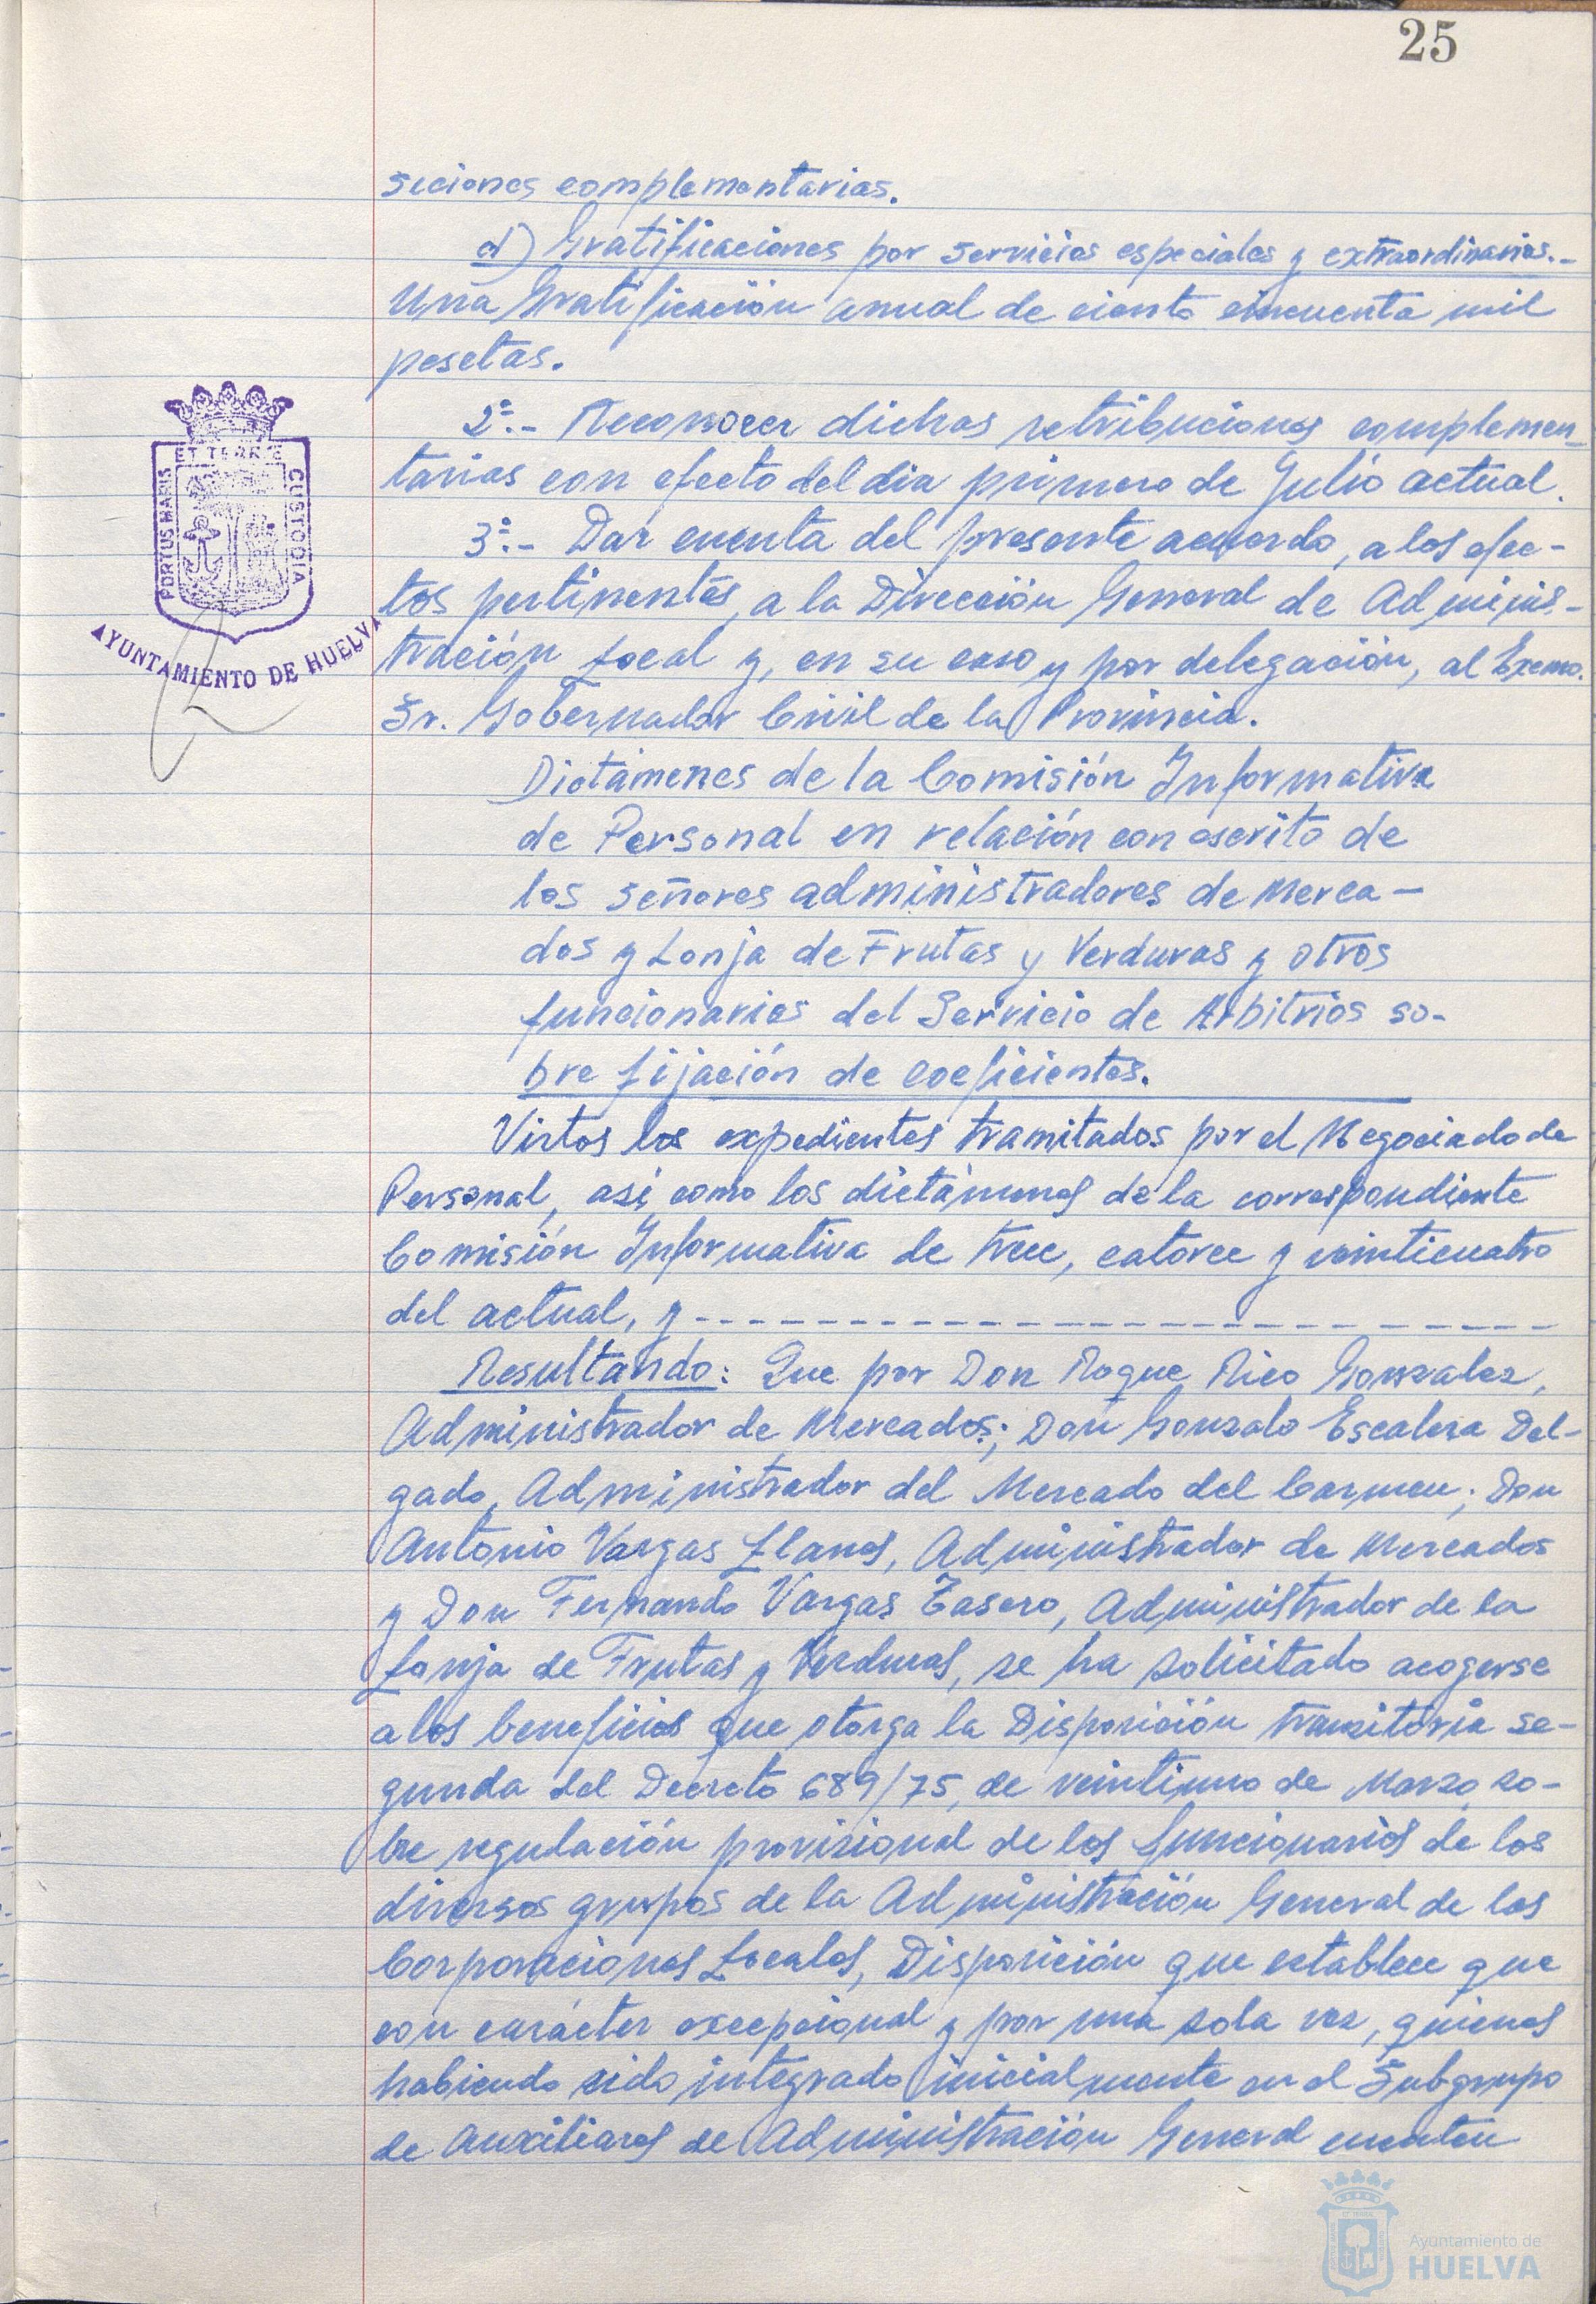 25
siciones complementarias.
d) Gratificaciones por servicios especiales y extraordinarios.-
Una Gratificación anual de ciento cincuenta mil
pesetas.
2º.- Reconocer dichas retribuciones complemen-
tarias con efecto del dia primero de Julio actual.
3º.- Dar cuenta del presente acuerdo, a los efec-
tos pertinentes, a la Dirección General de Adminis-
tración Local y, en su caso y por delegación, al Excmo.
Sr. Gobernador Civil de la Provincia.
PORTUS MARIS ET TERRE CUSTODIA
AYUNTAMIENTO DE HUELVA
Dictámenes de la Comisión Informativa
de Personal en relación con escrito de
los señores administradores de Merca-
dos y Lonja de Frutas y Verduras y otros
funcionarios del Servicio de Arbitrios so-
bre fijación de coeficientes.
Vistos los expedientes tramitados por el Negociado de
Personal, asi como los dictámenes de la correspondiente
Comisión Informativa de trece, catorce y veinticuatro
del actual, y - - - - - - - - - - - - - - - - - - - - -
Resultando: Que por Don Roque Rico Gonzalez,
Administrador de Mercados; Don Gonzalo Escalera Del-
gado, Administrador del Mercado del Carmen; Don
Antonio Vargas Llanes, Administrador de Mercados
y Don Fernando Vargas Tasero, Administrador de la
Lonja de Frutas y Verduras, se ha solicitado acogerse
a los beneficios que otorga la Disposición transitoria se-
gunda del Decreto 689/75, de veintiuno de Marzo, so-
bre regulación provisional de los funcionarios de los
diversos grupos de la Administración General de las
Corporaciones Locales, Disposición que establece que
con carácter excepcional y por una sola vez, quienes
habiendo sido integrado inicialmente en el Subgrupo
de Auxiliares de Administración General cuenten
Ayuntamiento de
HUELVA